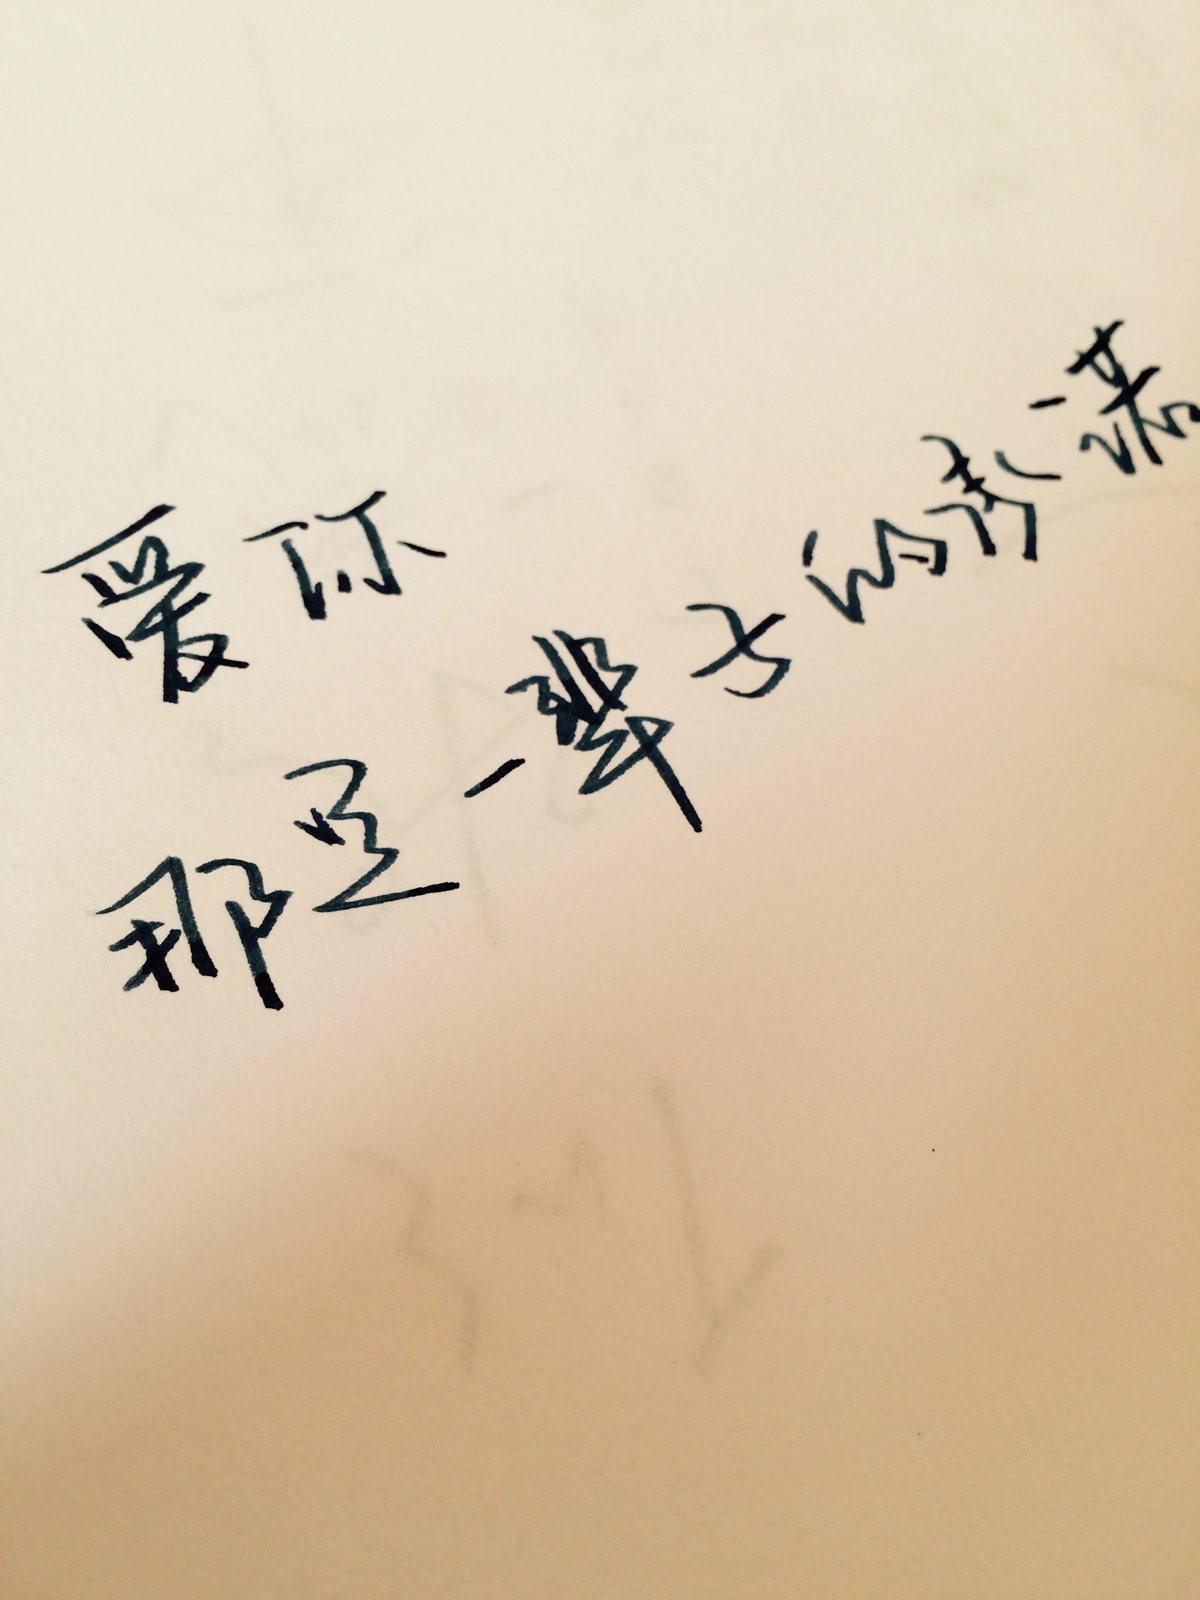 爱你
那是一辈子的承诺